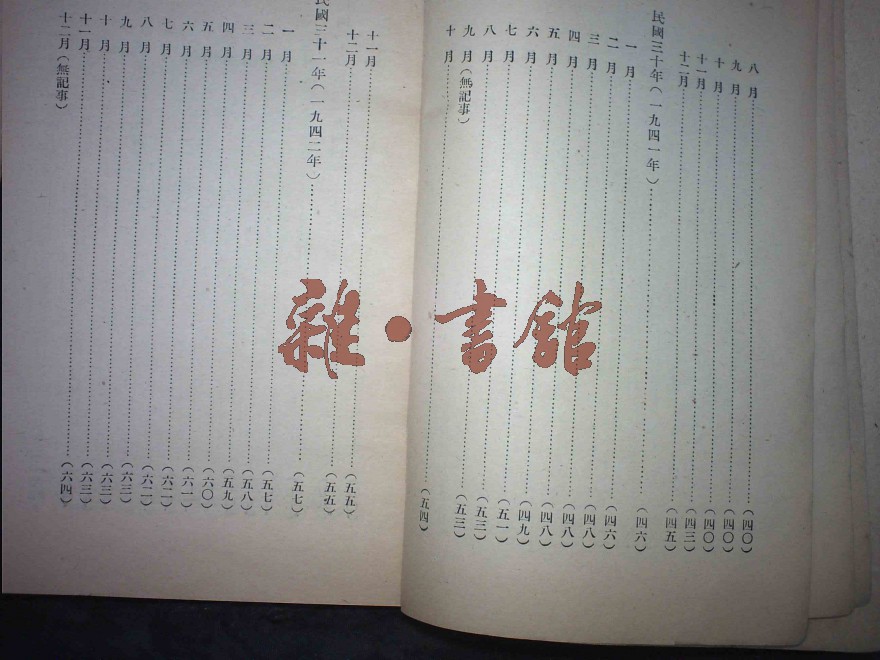 八月……(四〇)
九月……(四〇)
十月……(四〇)
十一月……(四三)
十二月……(四五)
民國三十年(一九四一年)……(四六)
一月……(四六)
二月……(四八)
三月……(四八)
四月……(四八)
五月……(四九)
六月……(五一)
七月……(五三)
八月……(五三)
九月(無記事)
十月……(五四)
十一月……(五五)
十二月……(五五)
民國三十一年(一九四二年)……(五七)
一月……(五七)
二月……(五八)
三月……(五九)
四月……(六〇)
五月……(六一)
六月……(六二)
七月……(六二)
八月……(六三)
九月……(六三)
十月……(六三)
十一月……(六四)
十二月(無記事)
雜・書館